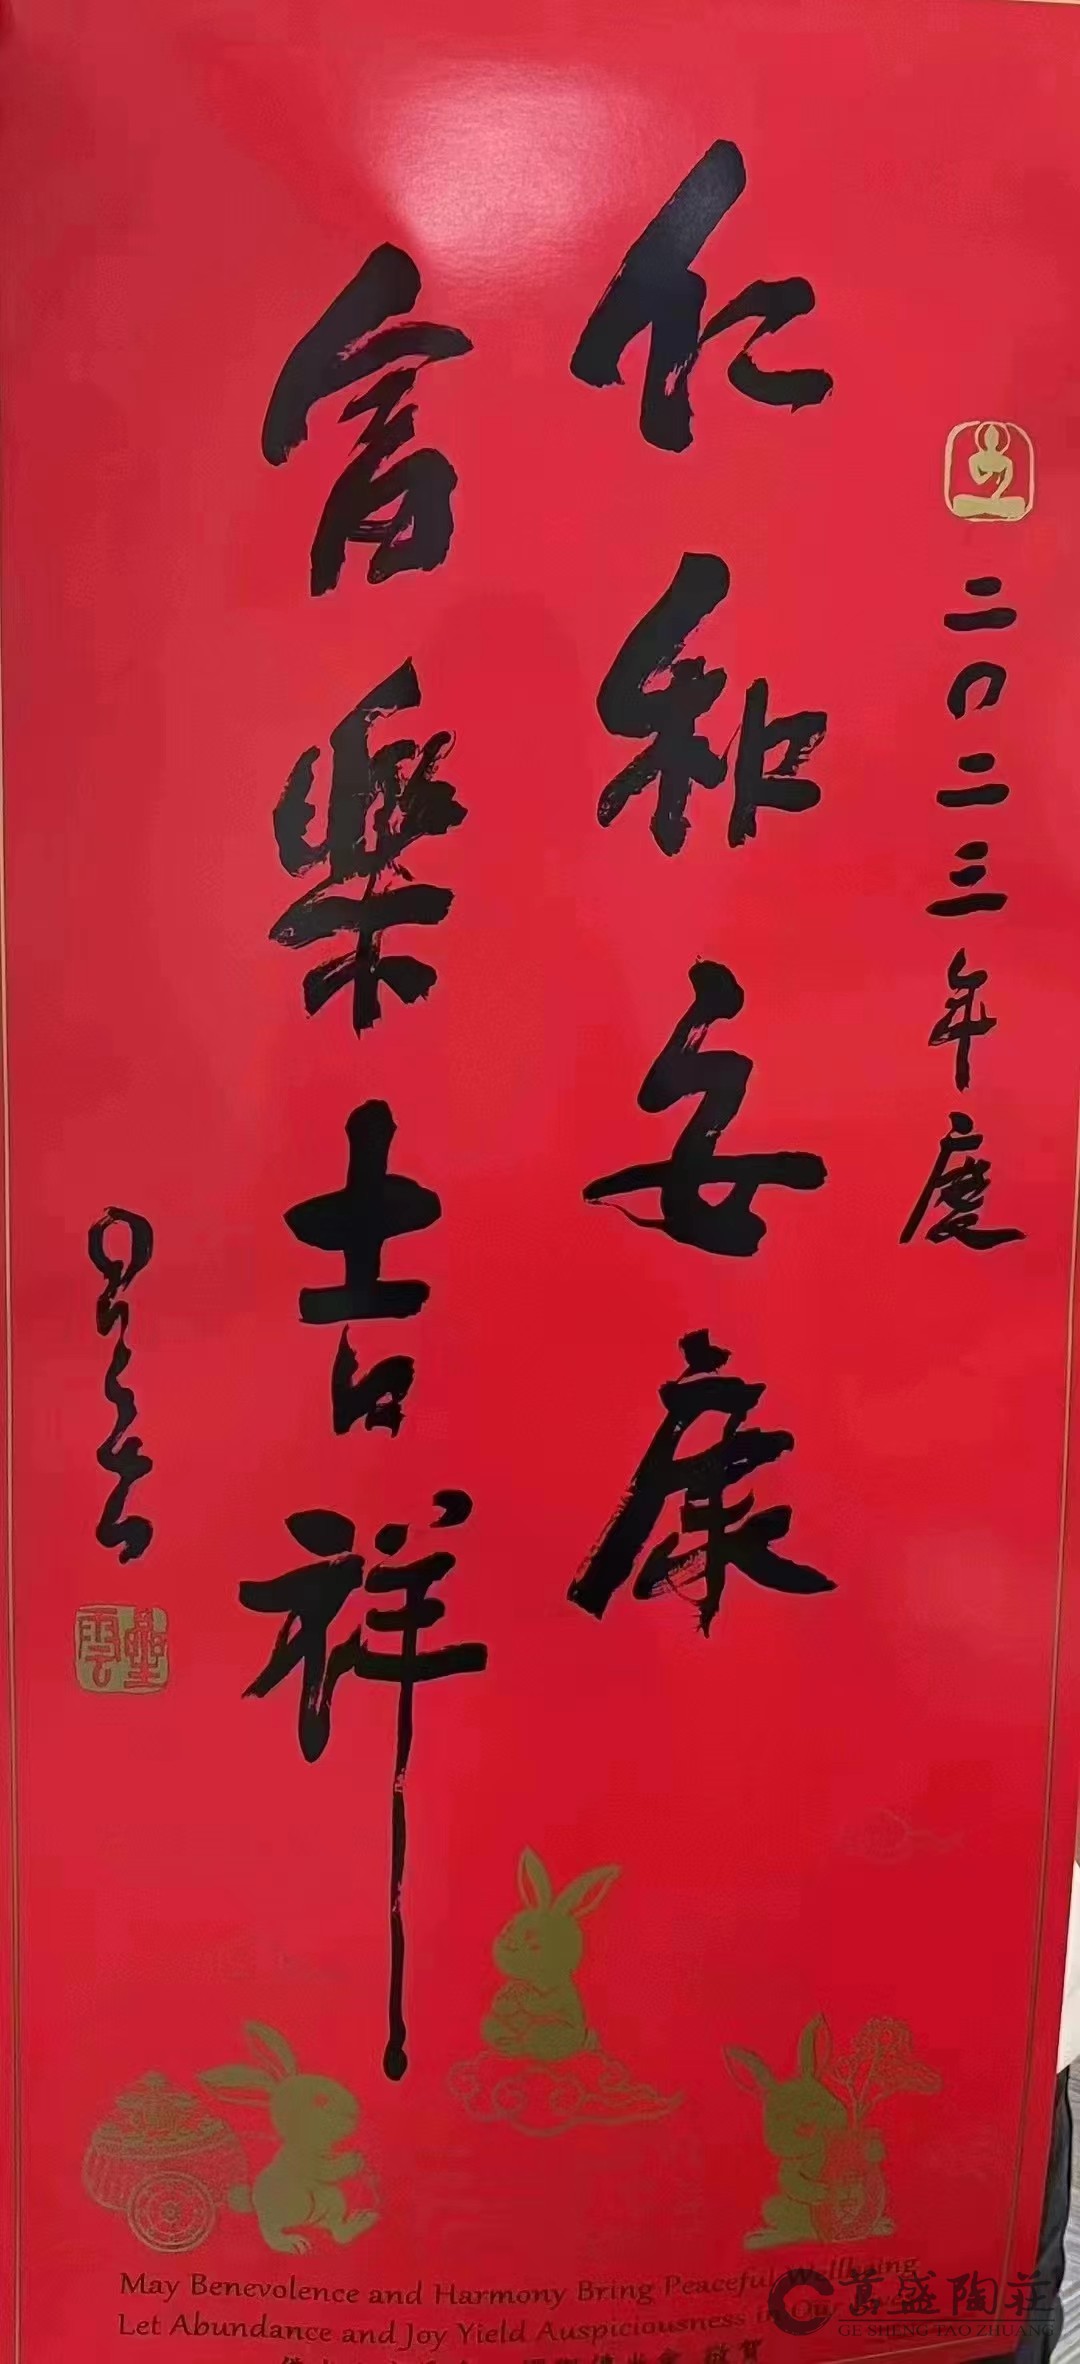 二〇二三年度
仁和安康
富樂吉祥
星雲
May Benevolence and Harmony Bring Peaceful Wellbeing
Let Abundance and Joy Yield Auspiciousness in Our Lives
國際佛光會 敬賀
萬盛陶莊
GE SHENG TAO ZHUANG